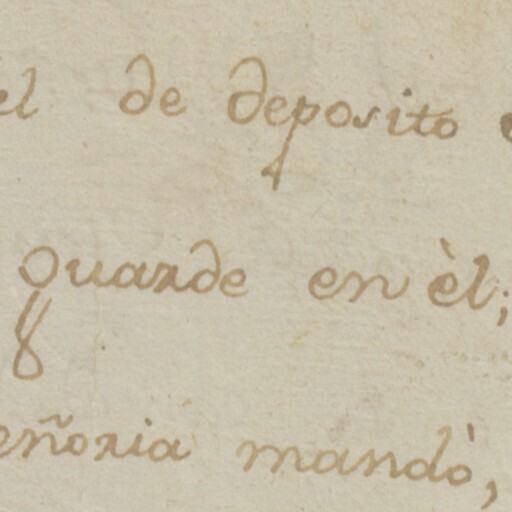 el de deposito
guarde en èl;
eñoria mandò,